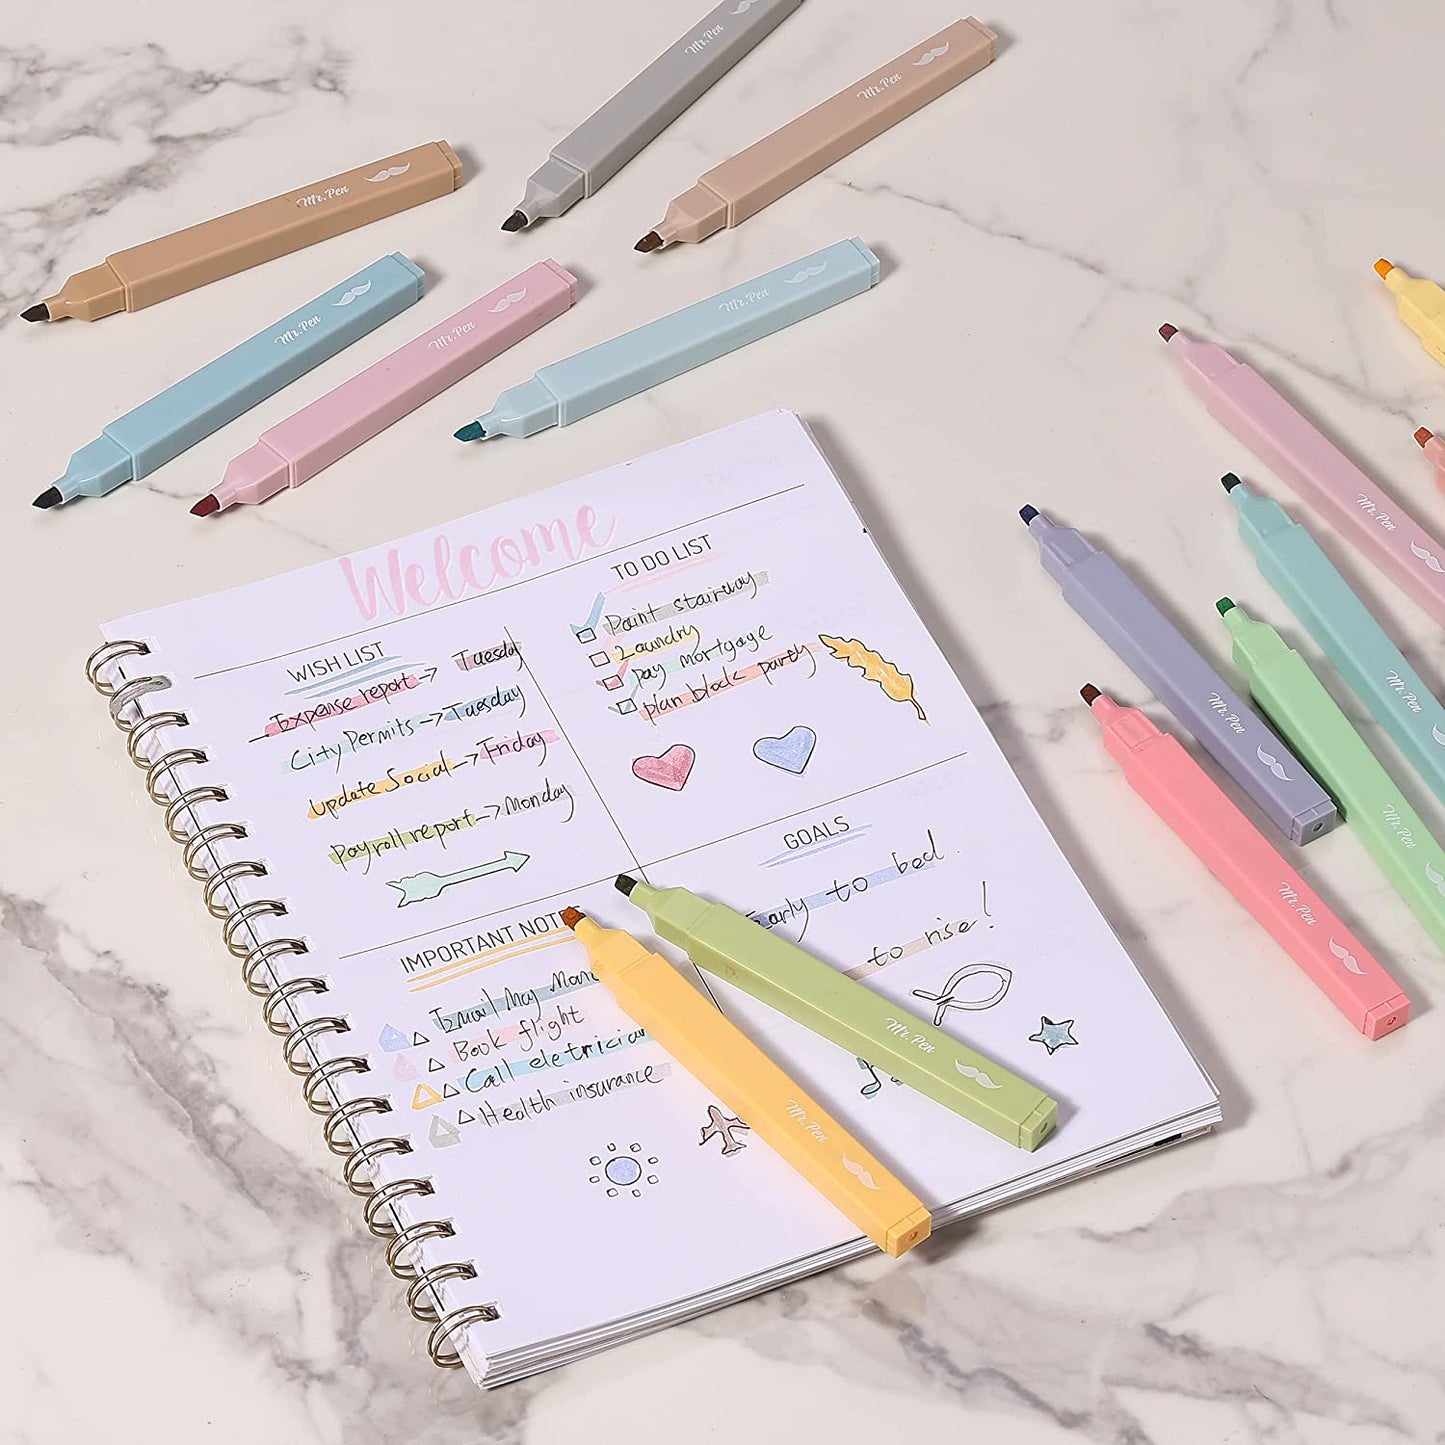 Mr.Pen
Mr.Pen
Mr.Pen
Mr.Pen
Mr.Pen
Mr.Pen
Welcome
WISH LIST
Expense report → Tuesday
City Permits → Tuesday
Update Social → Friday
Payroll report → Monday
TO DO LIST
Paint stairway
Laundry
pay mortgage
plan block party
GOALS
Early to bed.
to rise!
IMPORTANT NOTE
Email May
Book flight
Call eletrician
Health insurance
Mr.Pen
Mr.Pen
Mr.Pen
Mr.Pen
Mr.Pen
Mr.Pen
Mr.Pen